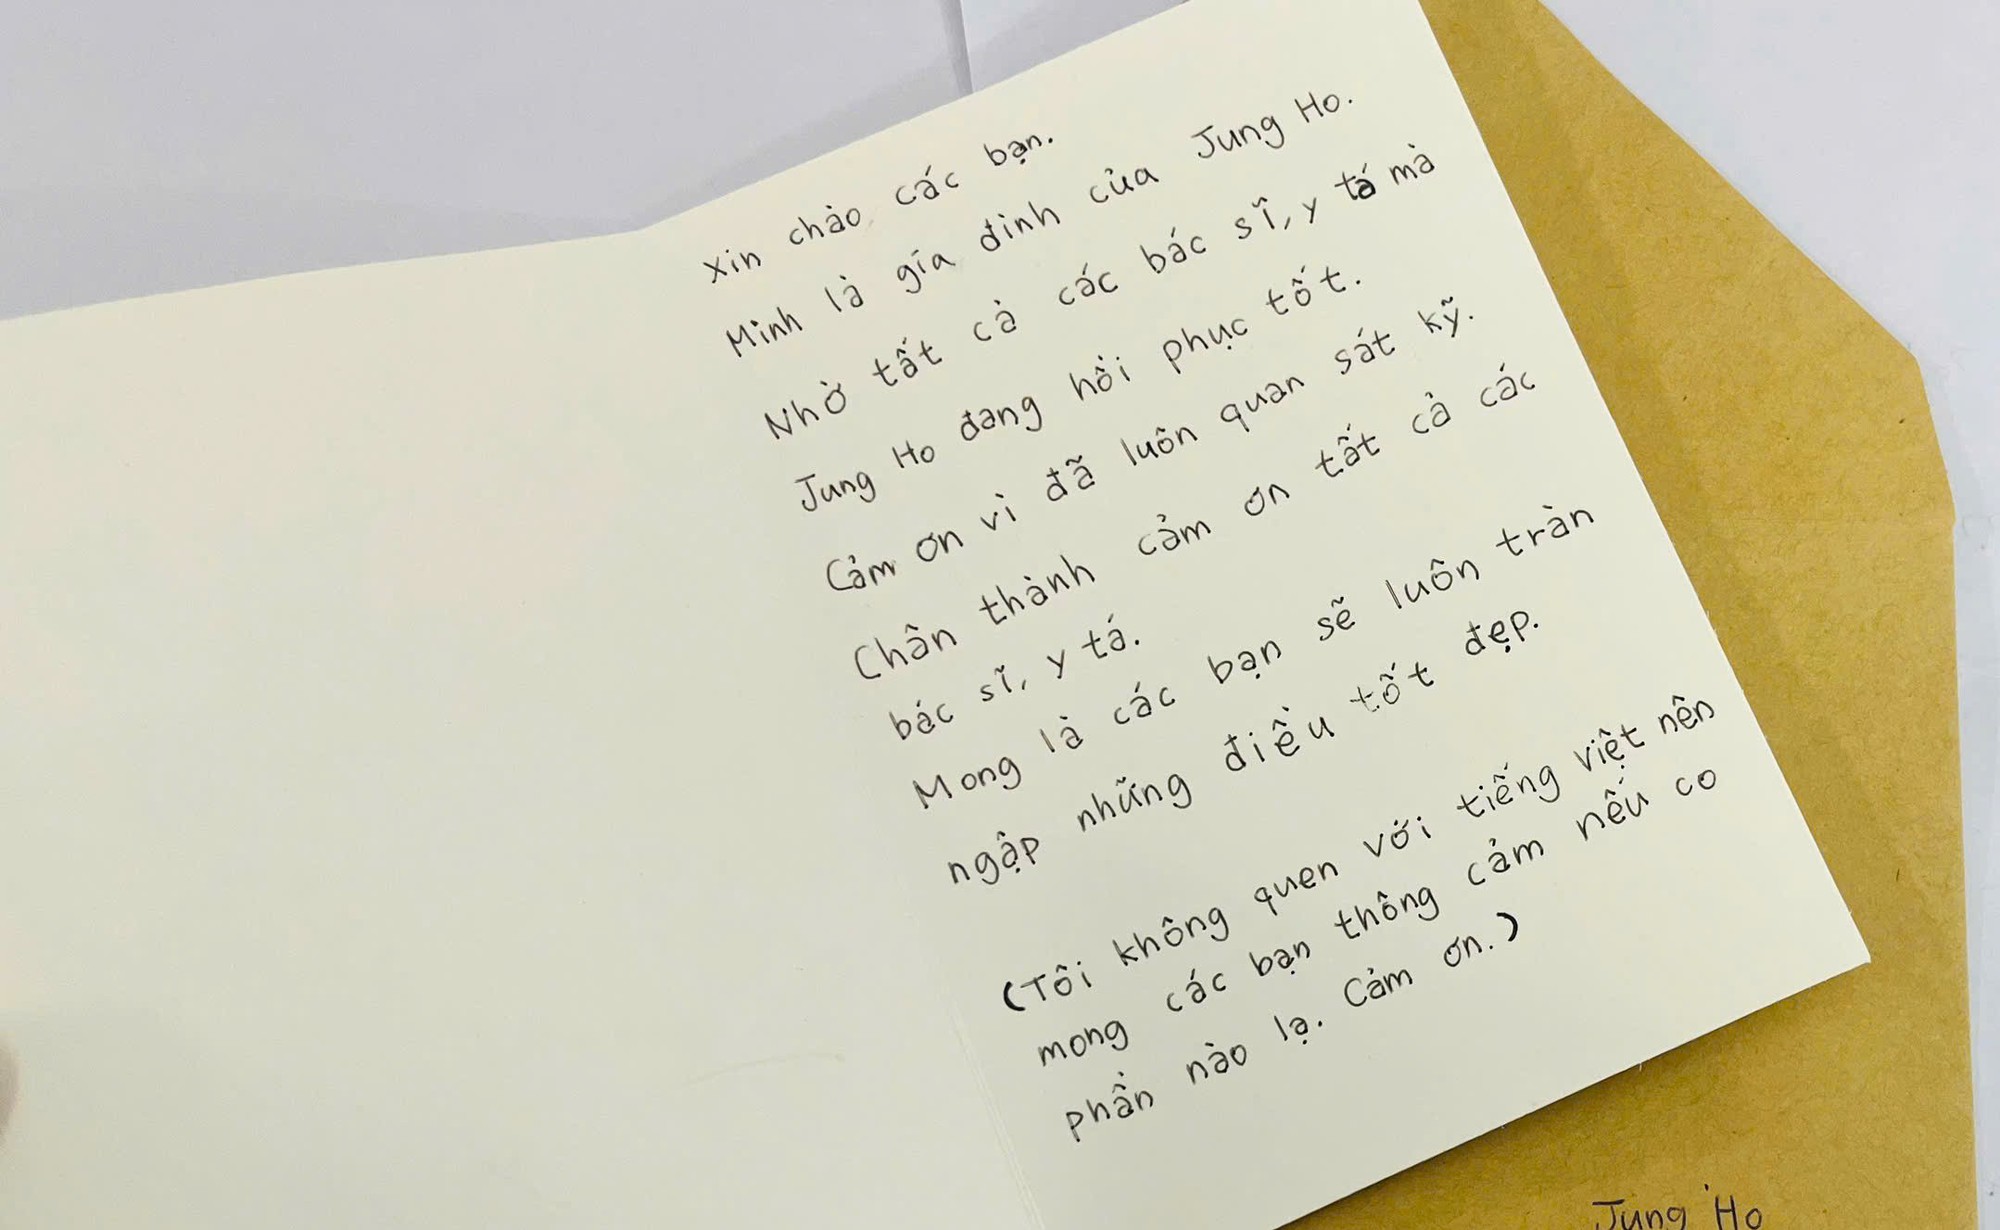 Xin chào các bạn.
Mình là gia đình của Jung Ho.
Nhờ tất cả các bác sĩ, y tá mà
Jung Ho đang hồi phục tốt.
Cảm ơn vì đã luôn quan sát kỹ.
Chân thành cảm ơn tất cả các
bác sĩ, y tá.
Mong là các bạn sẽ luôn tràn
ngập những điều tốt đẹp.
(Tôi không quen với tiếng việt nên
mong các bạn thông cảm nếu co
phần nào lạ. Cảm ơn.)
Jung Ho